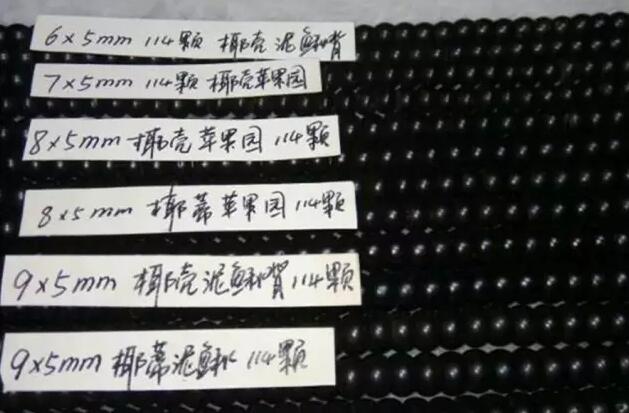 6×5mm 114颗 椰壳泥鳅背
7×5mm 114颗 椰壳苹果园
8×5mm 椰壳苹果园 114颗
8×5mm 椰蒂苹果园 114颗
9×5mm 椰壳泥鳅背 114颗
9×5mm 椰蒂泥鳅 114颗